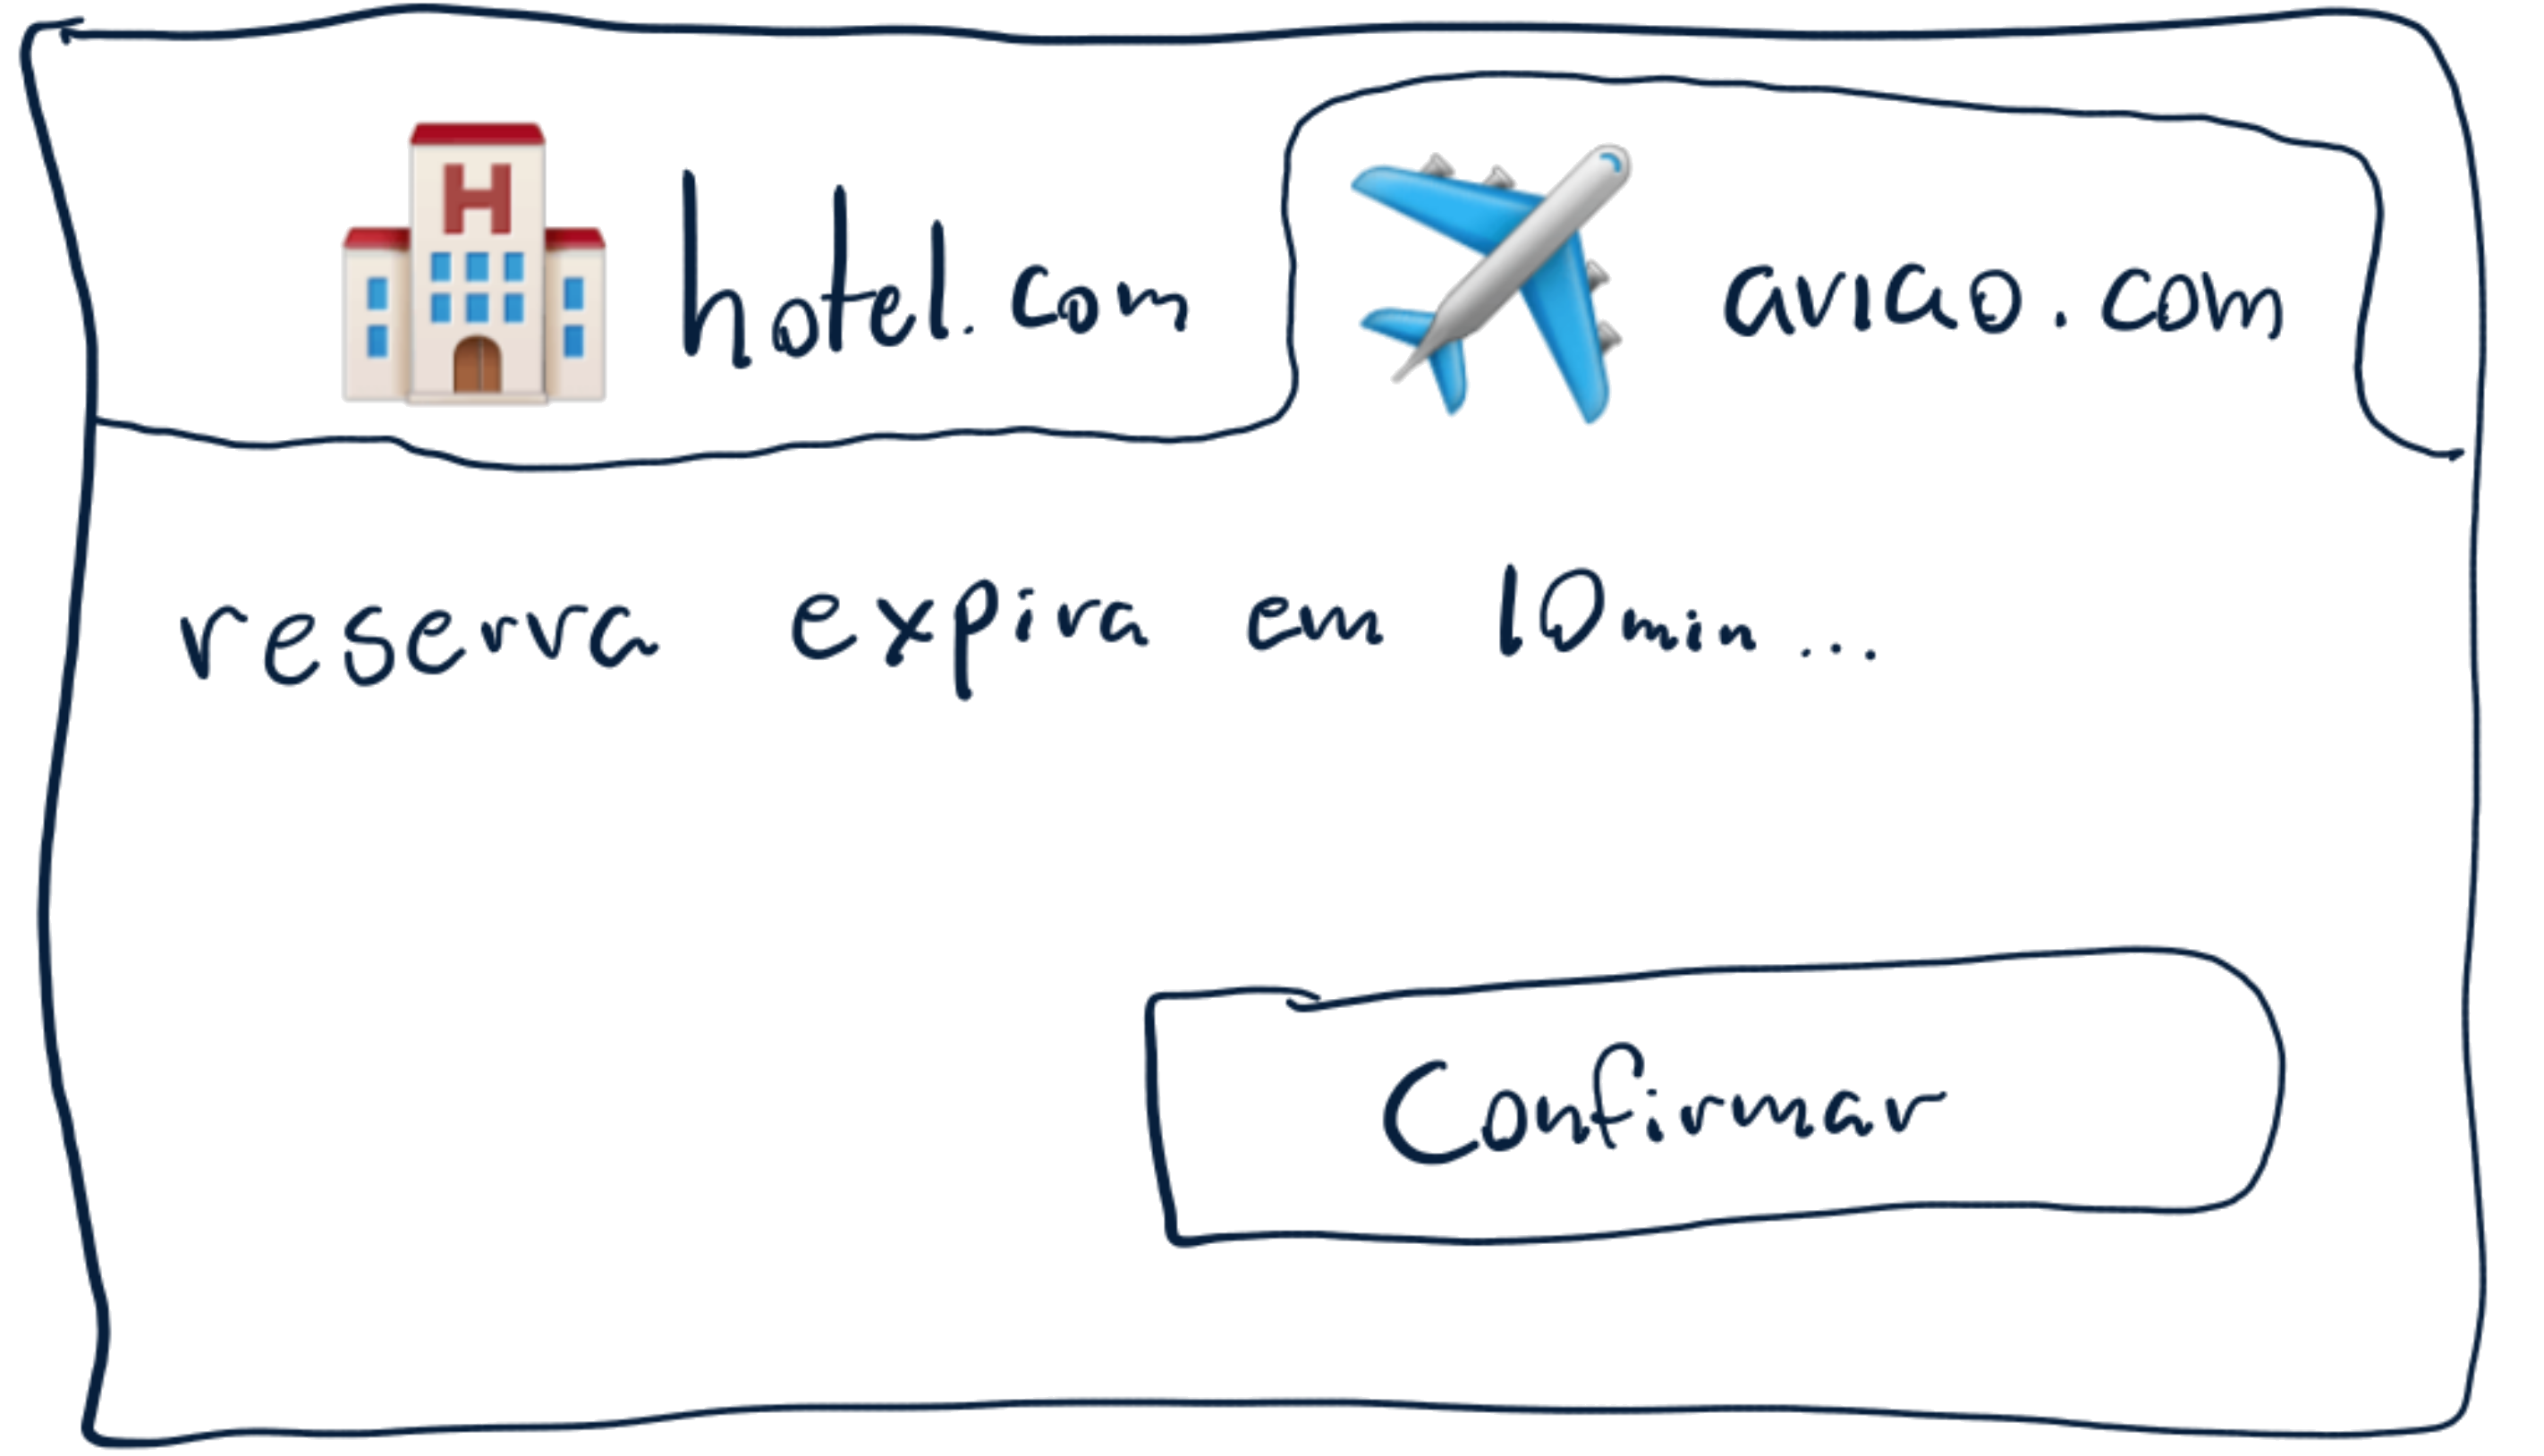 H
hotel.com
aviao.com
reserva expira em 10min...
Confirmar